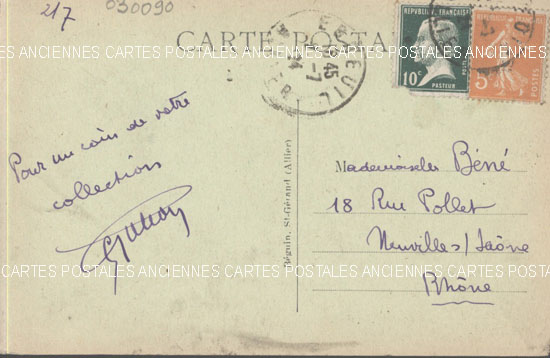 217
030090
CARTE POSTALE
RÉPUBLIQUE FRANÇAISE
10c
PASTEUR
POSTES
RÉPUBLIQUE FRANÇAISE
5c
POSTES
45
-7
24
ANCIENNES CARTES POSTALES ANCIENNES CARTES POSTALES ANCIENNES CARTES POSTALES
Pour un coin de votre
collection
Béguin, St-Gérand (Allier)
Mademoiselle Béné
18 Rue Pollet
Neuville s/ Saône
Rhône
CARTES POSTALES ANCIENNES CARTES POSTALES ANCIENNES CARTES POSTALES ANCIENNES